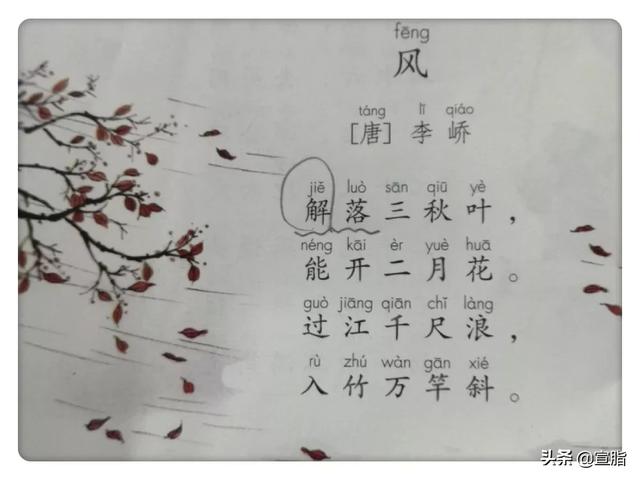 fēng
风
táng lǐ qiáo
[唐] 李峤
jiě luò sān qiū yè
解落三秋叶，
néng kāi èr yuè huā
能开二月花。
guò jiāng qiān chǐ làng
过江千尺浪，
rù zhú wàn gān xié
入竹万竿斜。
头条 @宣脂